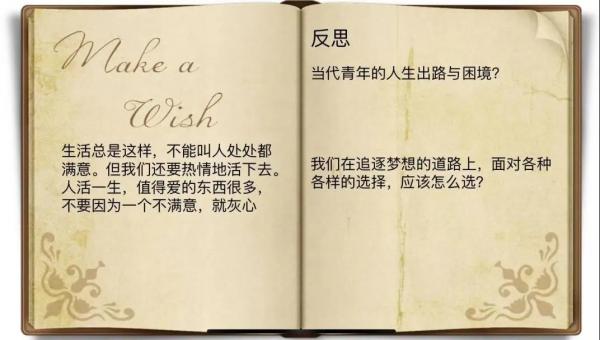 Make a
Wish
生活总是这样，不能叫人处处都
满意。但我们还要热情地活下去。
人活一生，值得爱的东西很多，
不要因为一个不满意，就灰心
反思
当代青年的人生出路与困境？
我们在追逐梦想的道路上，面对各种
各样的选择，应该怎么选？